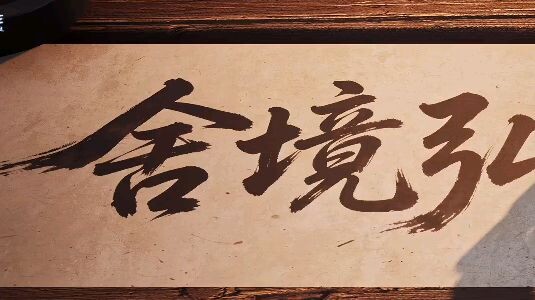 舍境弘